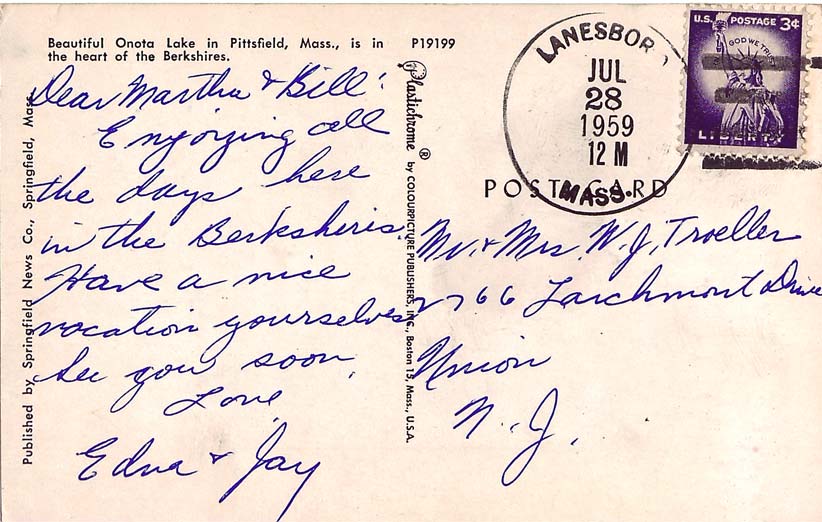 Beautiful Onota Lake in Pittsfield, Mass., is in
the heart of the Berkshires.
P19199
Dear Martha & Bill:
Enjoizing all
the days here
in the Berksheris.
Have a nice
vacation yourselves
See you soon,
Love
Edna & Jay
Published by Springfield News Co., Springfield, Mass.
Plastichrome ® by COLOURPICTURE PUBLISHERS, INC., Boston 15, Mass., U.S.A.
LANESBORO
JUL
28
1959
12 M
MASS.
U.S. POSTAGE 3¢
IN GOD WE TRUST
LIBERTY
POST CARD
Mr. & Mrs. W. J. Troeller
2766 Larchmont Drive
Union
N. J.